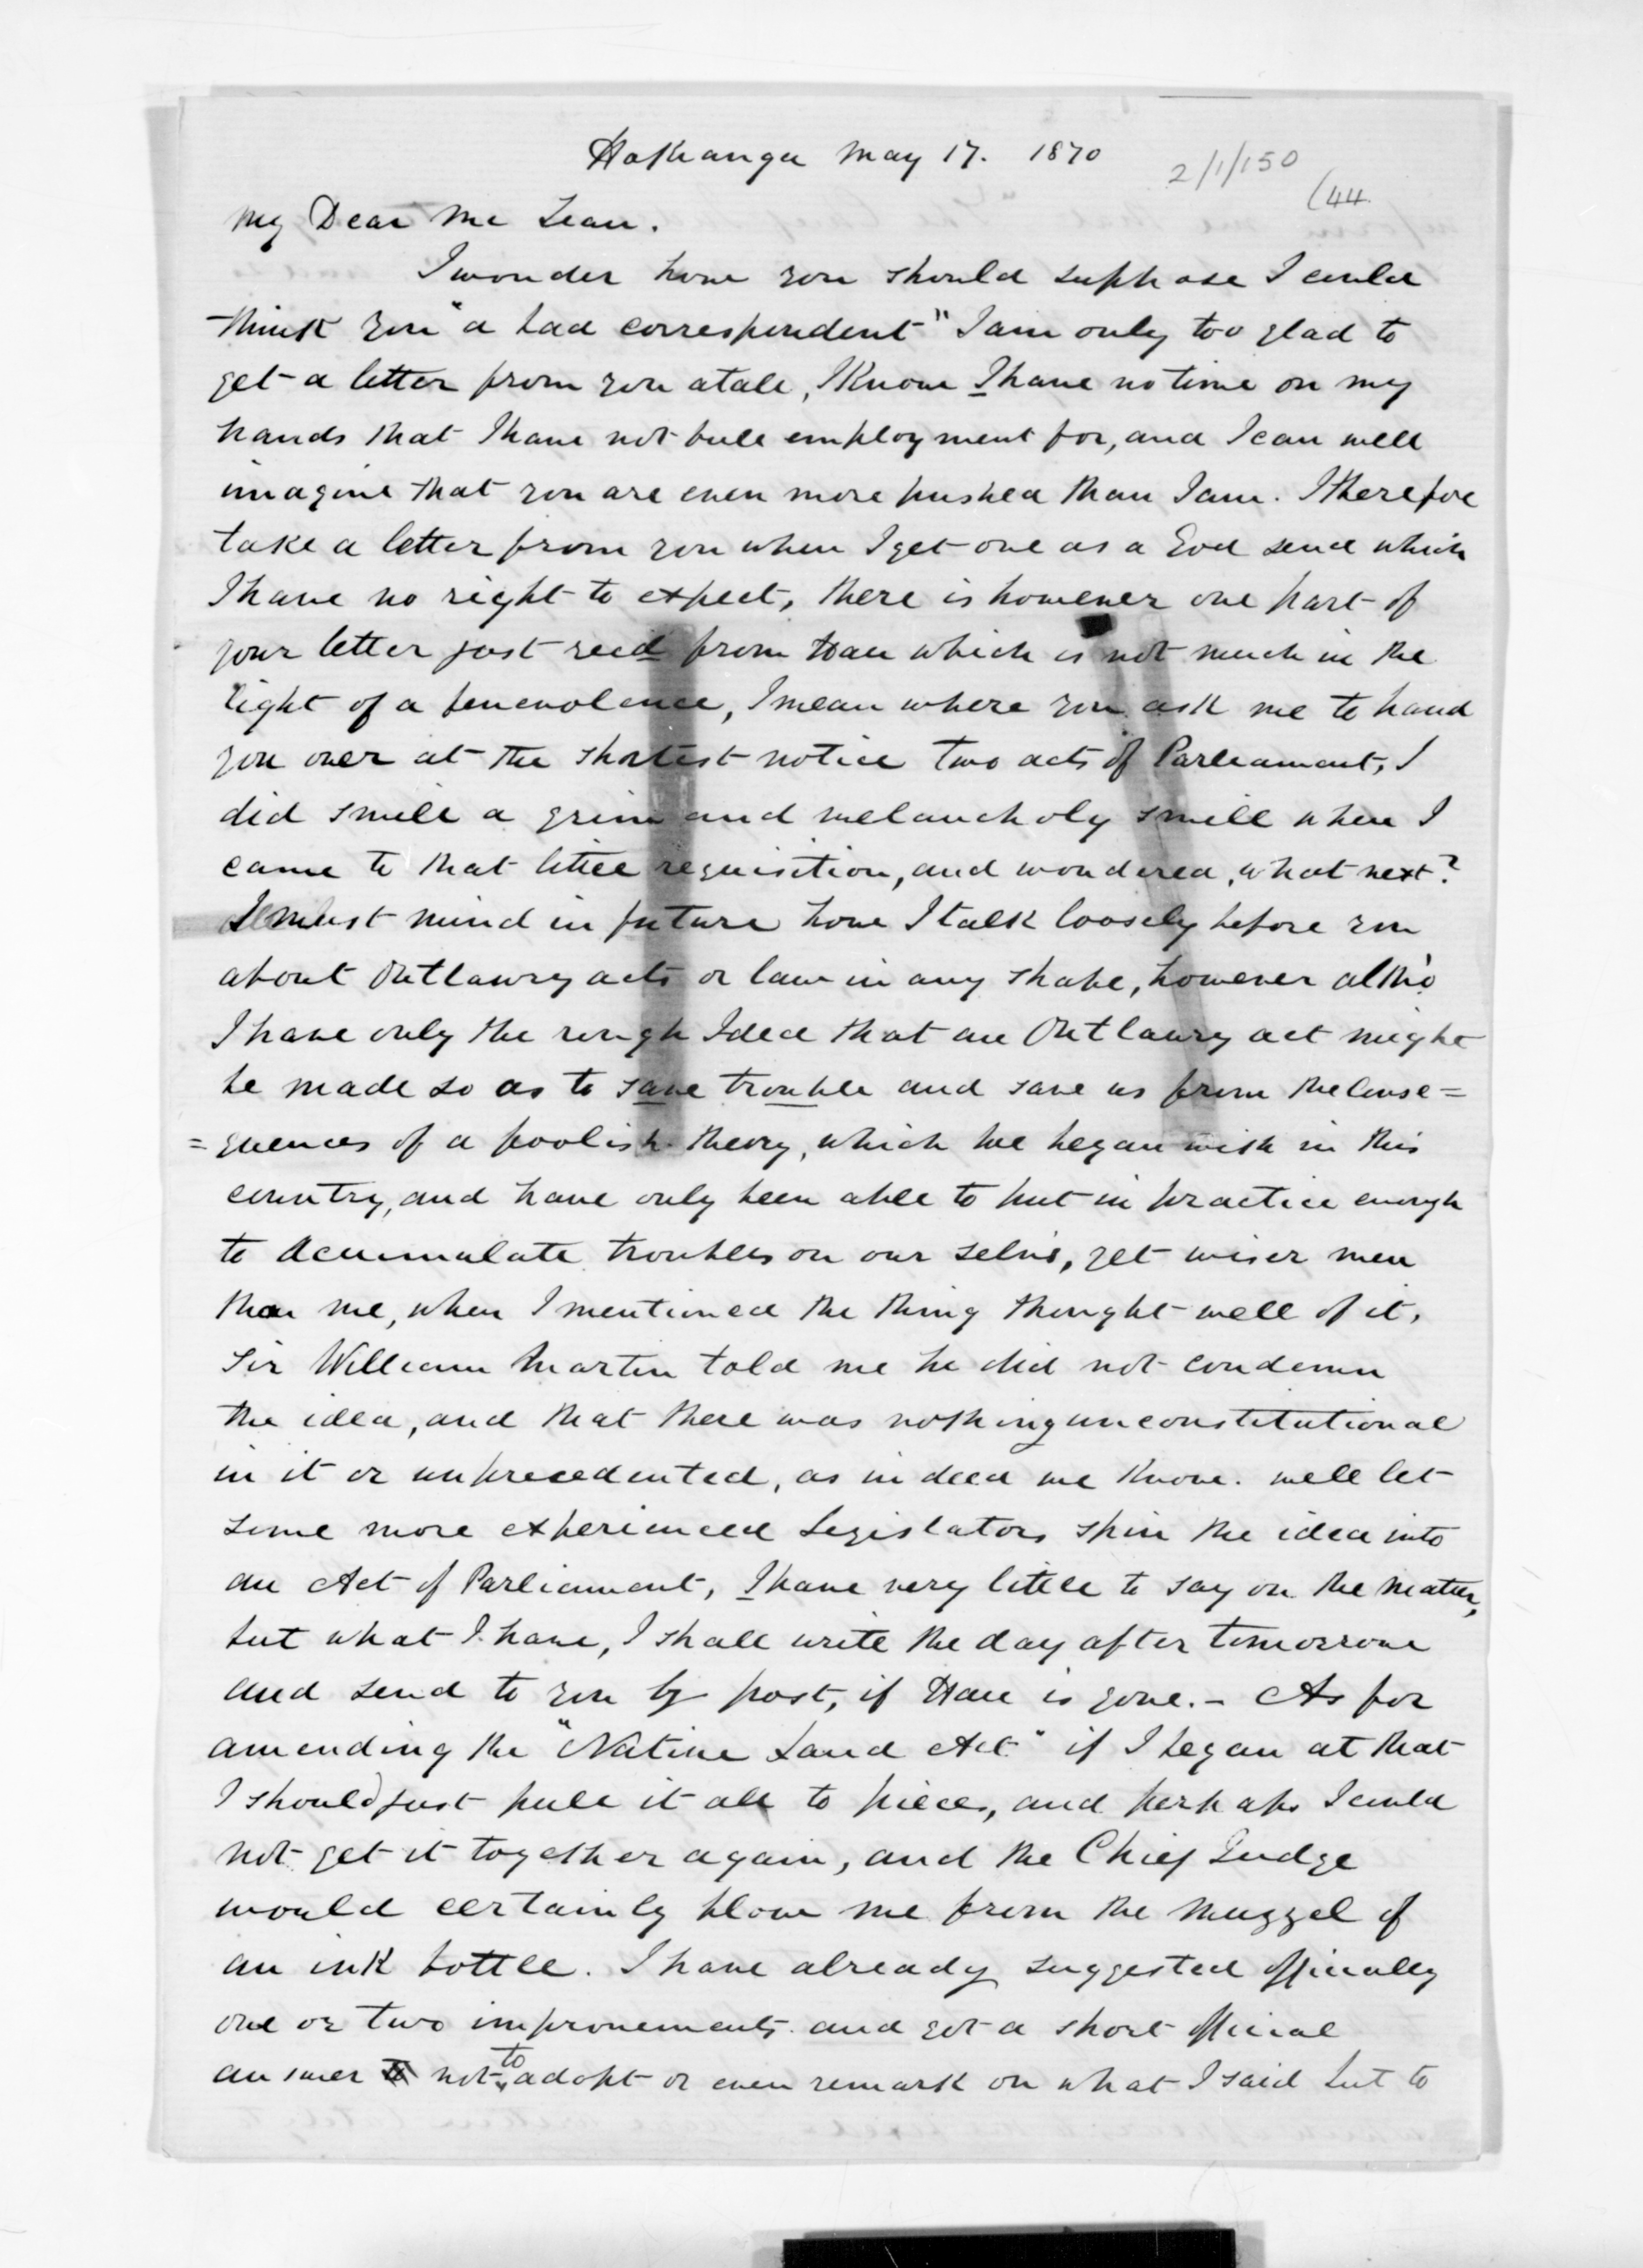 Hokianga May 17. 1870
2/1/150
(44
My Dear Mc Lean.
I wonder how you should suppose I could
think you "a bad correspondent" I am only too glad to
get a letter from you atall, I Know I have no time on my
hands that I have not full employment for, and I can well
imagine that you are even more pushed than I am. I therefore
take a letter from you when I get one as a God send which
I have no right to expect, there is however one part of
your letter just recd from Hau which is not much in the
light of a benevolence, I mean where you ask me to hand
you over at the shortest notice two acts of Parleament, I
did smile a grim and melancholy smile when I
came to that little requisition, and wondered, what next?
I must mind in future how I talk loosely before you
about Outlawry acts or law in any shape, however altho
I have only the rough Idea that an Outlawry act might
be made so as to save trouble and save us from the Conse=
=quences of a foolish theory, which we began with in this
country, and have only been able to put in practice enough
to acumulate troubles on our selves, yet wiser men
than me, when I mentioned the thing thought well of it,
Sir William Martin told me he did not condemn
the idea, and that there was nothing unconstitutional
in it or unprecedented, as indeed we Know. well let
some more experienced Legislators spin the idea into
an Act of Parliament, I have very little to say on the matter,
but what I have, I shall write the day after tomorrow
and send to you by post, if Hau is gone. - As for
amending the "Native Land Act" if I began at that
I should just pull it all to pieces, and perhaps I could
not get it together again, and the Chief Judge
would certainly blow me from the muzzel of
an ink bottle. I have already suggested officially
one or two improvements and got a short official
answer not to adopt or even remark on what I said but to